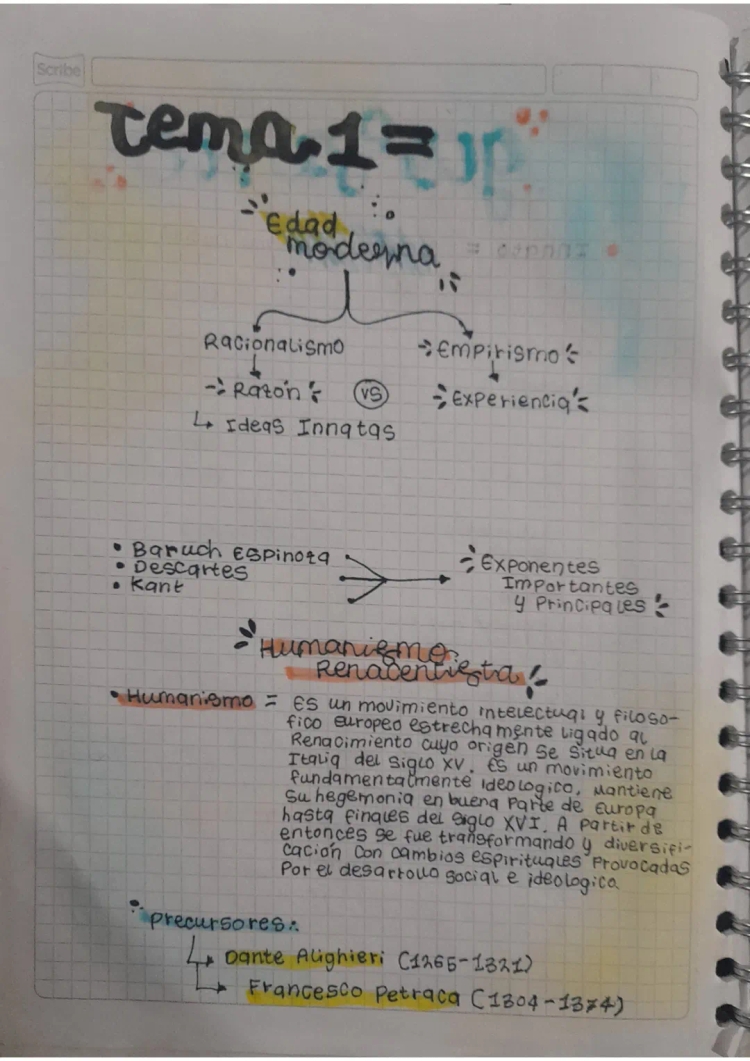 Scribe
Tema.1=
Edad
moderna
Racionalismo
Empirismo
Razón
vs
Experiencia
Ideas Innatas
• Baruch Espinoza
• Descartes
• Kant
Exponentes
Importantes
y Principales
Humanismo
Renacentista
• Humanismo = Es un movimiento intelectual y filoso-
fico europeo estrechamente ligado al
Renacimiento cuyo origen se situa en la
Italia del Siglo XV. Es un movimiento
fundamentalmente ideologico. Mantiene
su hegemonia en buena Parte de Europa
hasta finales del Siglo XVI. A Partir de
entonces se fue transformando y diversifi-
cación con cambios espirituales Provocadas
Por el desarrollo social e ideologico.
Precursores:
Dante Alighieri (1265-1321)
Francesco Petraca (1304-1374)